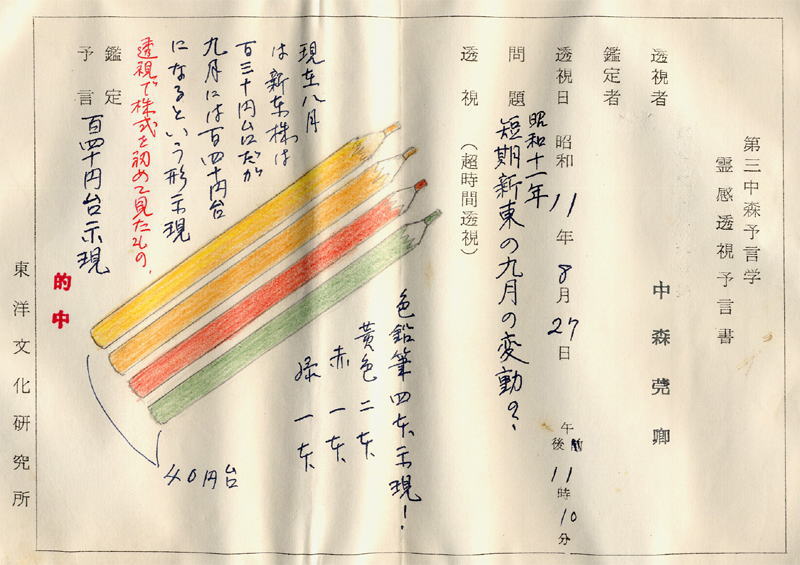 第三中森予言学
霊感透視予言書
透視者 中森蕘卿
鑑定者
透視日 昭和 11年 8月 27日 午後 11時 10分
問題 昭和十一年
短期新東の九月の変動の?
透視 (超時間透視)
色鉛筆四本示現!
黄色二本
赤一本
緑一本
40円台
現在八月
は新東株は
百三十円台だが
九月には百四十円台
になるという形示現
透視で株式を初めて見たもの、
鑑定
予言 百四十円台示現
的中
東洋文化研究所